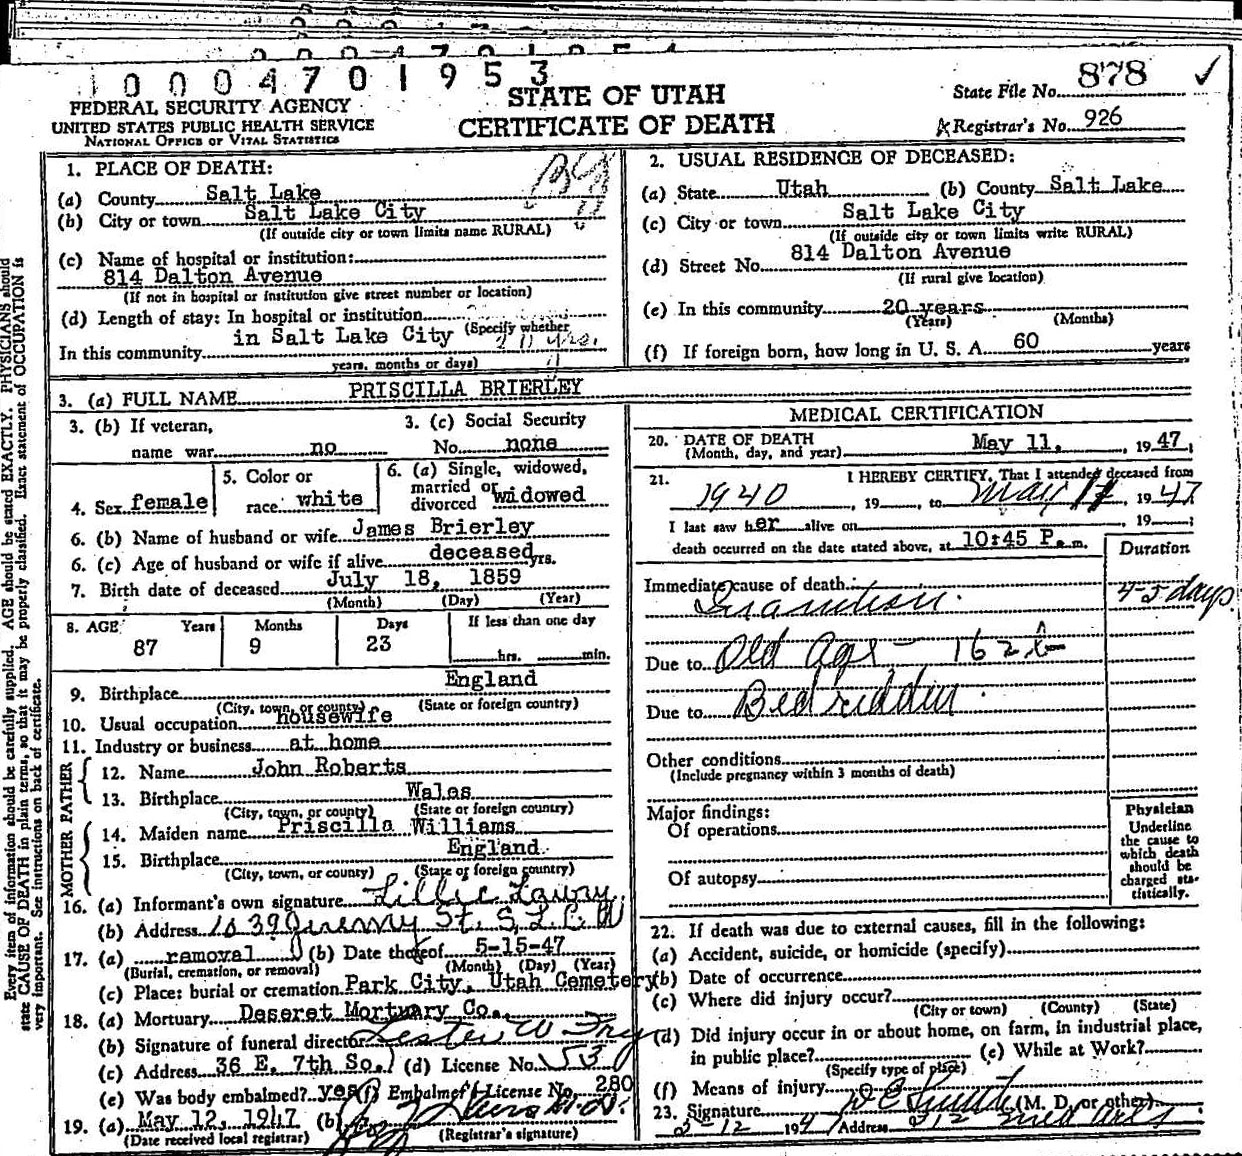 0004701953
FEDERAL SECURITY AGENCY
UNITED STATES PUBLIC HEALTH SERVICE
NATIONAL OFFICE OF VITAL STATISTICS
STATE OF UTAH
CERTIFICATE OF DEATH
State File No. 878 ✓
Registrar's No. 926
Every item of information should be carefully supplied. AGE should be stated EXACTLY. PHYSICIANS should
state CAUSE OF DEATH in plain terms, so that it may be properly classified. Exact statement of OCCUPATION is
very important. See instructions on back of certificate.
1. PLACE OF DEATH:
(a) County Salt Lake
(b) City or town Salt Lake City
(If outside city or town limits name RURAL)
(c) Name of hospital or institution:
814 Dalton Avenue
(If not in hospital or institution give street number or location)
(d) Length of stay: In hospital or institution
(Specify whether
in Salt Lake City
In this community
years, months or days)
2. USUAL RESIDENCE OF DECEASED:
(a) State Utah (b) County Salt Lake
(c) City or town Salt Lake City
(If outside city or town limits write RURAL)
(d) Street No. 814 Dalton Avenue
(If rural give location)
(e) In this community 20 years
(Years) (Months)
(f) If foreign born, how long in U. S. A. 60 years
3. (a) FULL NAME PRISCILLA BRIERLEY
3. (b) If veteran, name war no
3. (c) Social Security No. none
4. Sex female
5. Color or race white
6. (a) Single, widowed, married or divorced widowed
6. (b) Name of husband or wife James Brierley
6. (c) Age of husband or wife if alive deceased yrs.
7. Birth date of deceased July 18, 1859
(Month) (Day) (Year)
8. AGE Years Months Days If less than one day
87 9 23 hrs. min.
9. Birthplace England
(City, town, or county) (State or foreign country)
10. Usual occupation housewife
11. Industry or business at home
FATHER
12. Name John Roberts
13. Birthplace Wales
(City, town, or county) (State or foreign country)
MOTHER
14. Maiden name Priscilla Williams
15. Birthplace England
(City, town, or county) (State or foreign country)
16. (a) Informant's own signature Lillie
(b) Address St. S.L.C.
17. (a) removal (b) Date thereof 5-15-47
(Burial, cremation, or removal) (Month) (Day) (Year)
(c) Place: burial or cremation Park City, Utah Cemetery
18. (a) Mortuary Deseret Mortuary Co.
(b) Signature of funeral director Lester W
(c) Address 36 E. 7th So. (d) License No. 153
(e) Was body embalmed? yes (f) Embalmer's License No. 280
19. (a) May 12, 1947 (b)
(Date received local registrar) (Registrar's signature)
MEDICAL CERTIFICATION
20. DATE OF DEATH May 11, 1947
(Month, day, and year)
21. I HEREBY CERTIFY, That I attended deceased from
1940, 19 , to May 1947
I last saw her alive on , 19 ;
death occurred on the date stated above, at 10:45 P. m.
Duration
Immediate cause of death: 4-5 days
Inanition.
Due to Old Age - 162
Due to Bedridden.
Other conditions
(Include pregnancy within 3 months of death)
Major findings:
Of operations
Of autopsy
Physician
Underline the cause to which death should be charged statistically.
22. If death was due to external causes, fill in the following:
(a) Accident, suicide, or homicide (specify)
(b) Date of occurrence
(c) Where did injury occur?
(City or town) (County) (State)
(d) Did injury occur in or about home, on farm, in industrial place,
in public place? (e) While at Work?
(Specify type of place)
(f) Means of injury
23. Signature (M. D. or other)
5-12 1947 Address 212 Med Arts